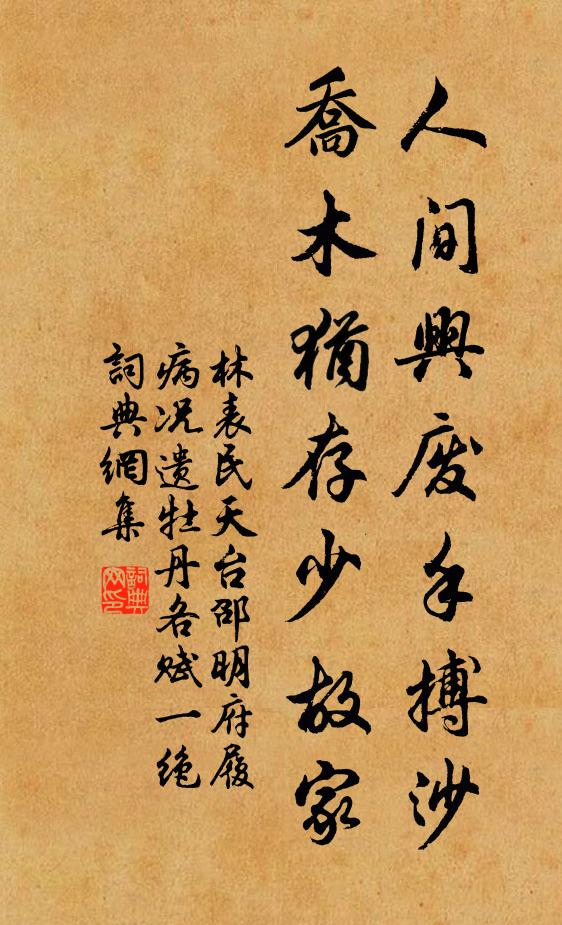 人間興废手搏沙
喬木猶存少故家
林表民天台邵明府履
病况遗牡丹各赋一绝
詞典網集
詞典网印